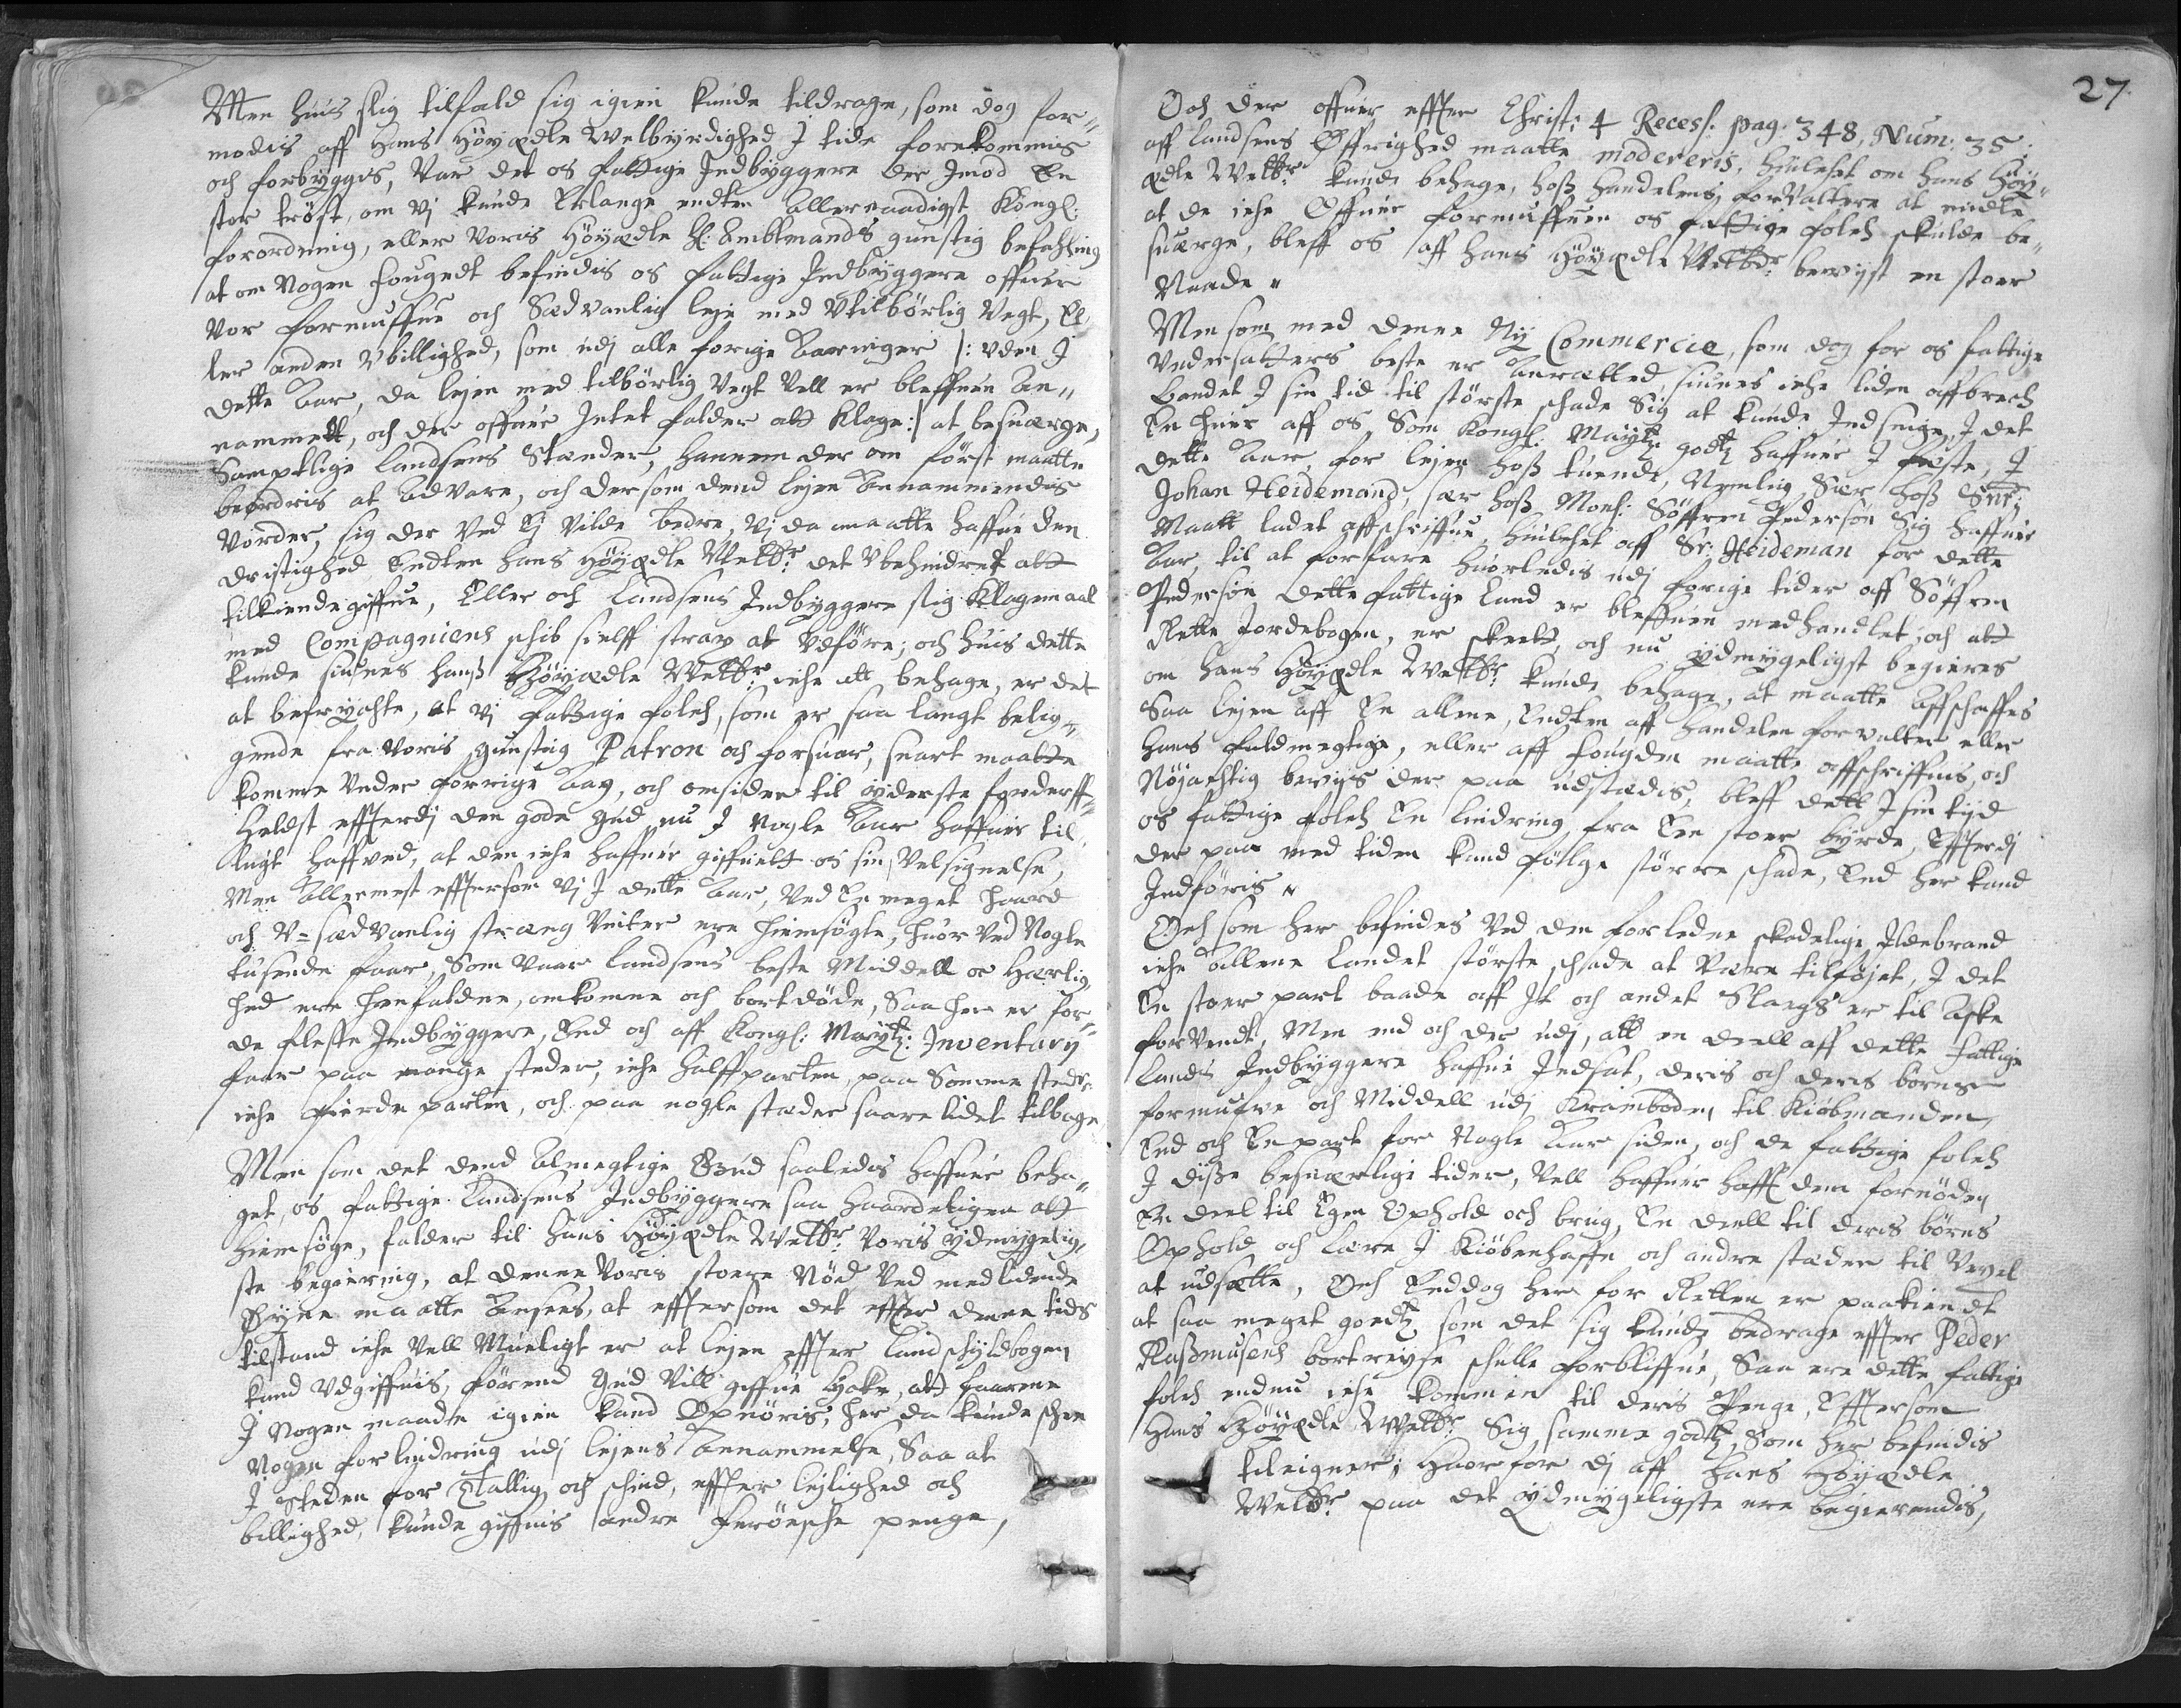 Men huis slig tilfald sig igien kunde tildrage, som dog for¬
modis aff Hans Höyædle Welbyrdighed I tide forekommis
och forbyggis, Var det os fattige Indbyggere der Imod En
stor tröst, om Vj kunde Erlange endten Allernaadigst Kongl:
forordning, eller Voris Höyædle H: Ambtmands gunstig befahling
at om Nogen fougedt befindis os fattige Indbyggere offuer
Vor formuffue och Sædvanlig leje med Vtilbörlig Vegt, El¬
ler anden Vbillighed, som udj alle forige Aaringer /: vden I
dette Aar, da lejen med tilbörlig Vegt Vell er bleffuen An¬
nammett, och der offuer Intet falder att Klage :/ at besuærge,
Samptlige Landsens Stænder, hannem der om först maatte
beordris at Advare, och der som dend lejen Annammendis
Vorder, sig der Ved Ej Vilde bedre, Vj da maatte haffue den
dristighed Endten Hans Höyædle Welbr: det Vbehindret att
tilkiendegiffue, Eller och Landsens Indbyggere slig Klagemaal
med Compagniens schib sielff strax at Vdföre; och huis dette
kunde siunes Hanß Höyædle Welbr: iche att behage, er det
at befrychte, at vj fattige folch, som er saa langt belig¬
gende fra Voris gunstig Patron och forsuar, snart maatte
komme Vnder forrige Aag, och omsider til yderste forderff¬
Heldst effterdj den gode Gud nu I Nogle Aar haffuer til¬
lugt haffved, at den iche haffuer giffuelt os sin Velsignelse,
Men Allermest efftersom Vj I dette Aar, Ved En meget haard
och V-sædvanlig stræng Vinter ere hiemsögte, huor Ved Nogle
tusende faar, Som Vaar Landsens beste Middell oc Herlig¬
hed ere henfaldne, omkomne och bortdöde, Saa her er for¬
de fleste Indbyggere, End och aff Kongl: Maytz: Inventary
faar paa mange steder, iche halffparten, paa Somme steder
iche Fierde parten, och paa nogle stæder saare lidet tilbage
Men som det dend Almegtige Gud saaledis haffuer beha¬
get, os fattige Landsens Indbyggere saa haardeligen att
Hiemsöge, falder til Hans Höyædle Welbr: Voris ydmygelig¬
ste begiering, at denne Voris stoere Nöd Ved medlidende
Øyne maatte Ansees, at effter som det effter denne tids
tilstand iche Vell Mueligt er at lejen effter Landschyldbogen
kand Vdgiffuis, förend Gud Vill giffue Lyche, att faarene
I Nogen maade igien kand Opnöris, her da kunde schee
Nogen forlindring udj lejens Annammelse, Saa at
I steden for Tallig och schind, effter lejlighed och
billighed, kunde giffuis andre feröesche penge,
27.
Och der offuer effter Christ: 4 Recess: pag: 348, Num: 35:
aff Landsens Øffrighed maatte modereris, huilchet om Hans Höy¬
ædle Welbr: kunde behage, hoß Handelens forvaltere at meddle
at de iche Offuer formuffuen os fattige folch skulde be¬
suærge, bleff os aff Hans Höyædle Welbr: bevijst en stoer
Naade
Men som med denne Ny Commercie, som dog for os fattige
Vndersatters beste er Anrætted, siunes iche liden affbrech
Landet I sin tid til störste schade Sig at kunde Indsnige, I det
En huer aff os, Som Kongl: Maytz: godtz haffuer I feste, I
dette Aar, for lejen hoß tuende, Nemlig Sær hoß Snr:
Johan Heidemand, sær hoß Mons: Söffren Pedersön Sig haffuer
Maatt ladet affschriffue, huilchet aff Sr: Heideman for dette
Aar, til at forfare huorledis udj forige tider aff Söffren
Pedersön dette fattige Land er bleffuen medhandlet, och att
Rette Jordebogen, er skeett, och nu ydmygeligst begieres
om Hans Höyædle Welbr: kunde behage, at maatte Affschaffes
Saa lejen aff En allene, Endten aff Handelen forvalter eller
Hans fuldmegtige, eller aff fougden maatte affschriffuis, och
Nöjachtig bevijs der paa udstædis, bleff dett I sin tijd
os fattige folch En lindring fra Een stoer byrde, Effterdj
der paa med tiden kand fölge större schade, End her kand
Indföris
Och som her befindes Ved den forledne skadelige Ildebrand
iche Allene Landet störste schade at Være tilföjet, I det
En stoer part baade aff It och andet Slaegs er til Aske
forvendt, Men end och der udj, att en deell aff dette fattige
Lands Indbyggere haffue Indsat, deris och deris borns
formufve och Middell udj Kramboden til Kiöbmanden,
End och En part for Nogle Aar siden, och de fattige folch
I diße besuærlige tider, Vell haffuer hafft dem fornöden
En deel til Egen Ophold och brug, En deell til deris börns
Ophold och lære I Kiöbenhaffn och andre stæder til Vexel
at udsætte, Och Enddog her for Retten er paakiendt
at saa meget goedtz som det sig kunde bedrage effter Peder
Rasßmusens bortreyse schulle forbliffue, Saa ere dette fattige
folch endnu iche kommen til deris Penge, Effter som
Hans Höyædle Welbr: Sig samme godtz, Som her befindis
tileigner, huorfor dj aff Hans Höyædle
Welbr: paa det ydmygeligste ere begierendis,